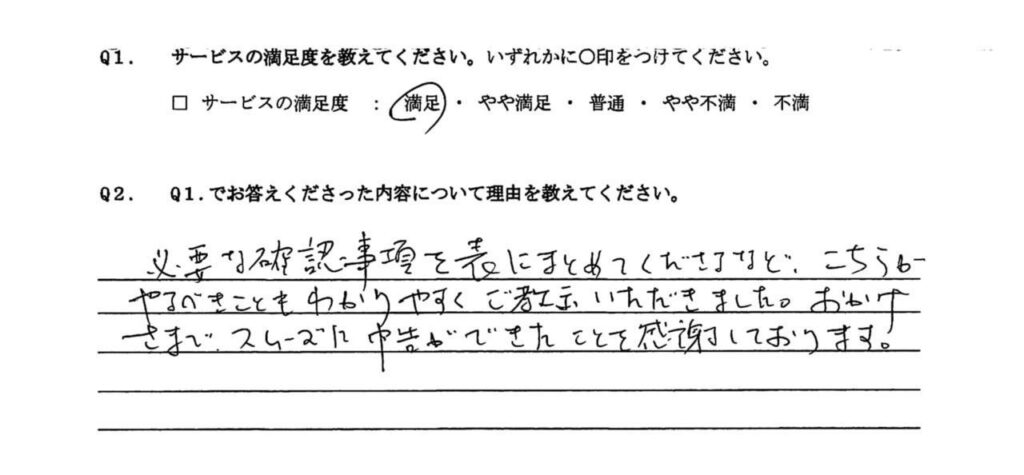 Q1. サービスの満足度を教えてください。いずれかに〇印をつけてください。
□ サービスの満足度 : 満足 ・ やや満足 ・ 普通 ・ やや不満 ・ 不満
Q2. Q1.でお答えくださった内容について理由を教えてください。
必要な確認事項を表にまとめてくださるなど、こちらが
やるべきこともわかりやすくご教示いただきました。おかげ
さまで、スムーズに申告ができたことを感謝しております。